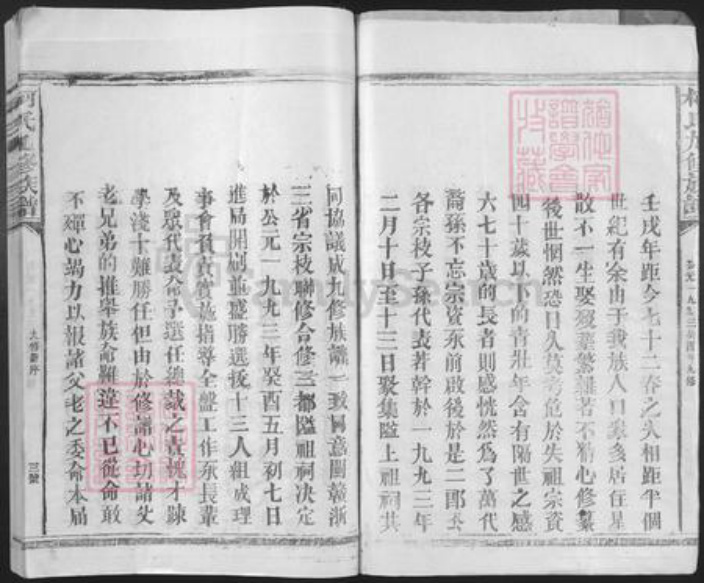 壬戌年距今七十二春之久相距半個
世紀有余由于我族人口衆多居住星
散不一生娶歿葬繁雜若不精心修纂
後世惘然恐日久莫考危於失祖宗資
四十歲以下的青壯年含有隔世之感
六七十歲的長者則感恍然爲了萬代
裔孫不忘宗資承前啟後於是二
各宗枝子孫代表若幹於一九九三年
二月十日至十二日聚集隘上祖祠共
同協議成九修族譜一致同意閩贛浙
三省宗枝聯修合修三都隘祖祠決定
於公元一九九三年癸酉五月初七日
進局開刷重盛勝選拔十三人組成理
事會負責實施指導全盤工作承長輩
及眾代表命予選任總裁之責愧才踈
學淺十難勝任但由於修譜心切諸父
老兄弟的推舉族命難違不已從命敢
不殫心竭力以報諸父老之委命本屆
氏九修族譜
三號
FamilySearch